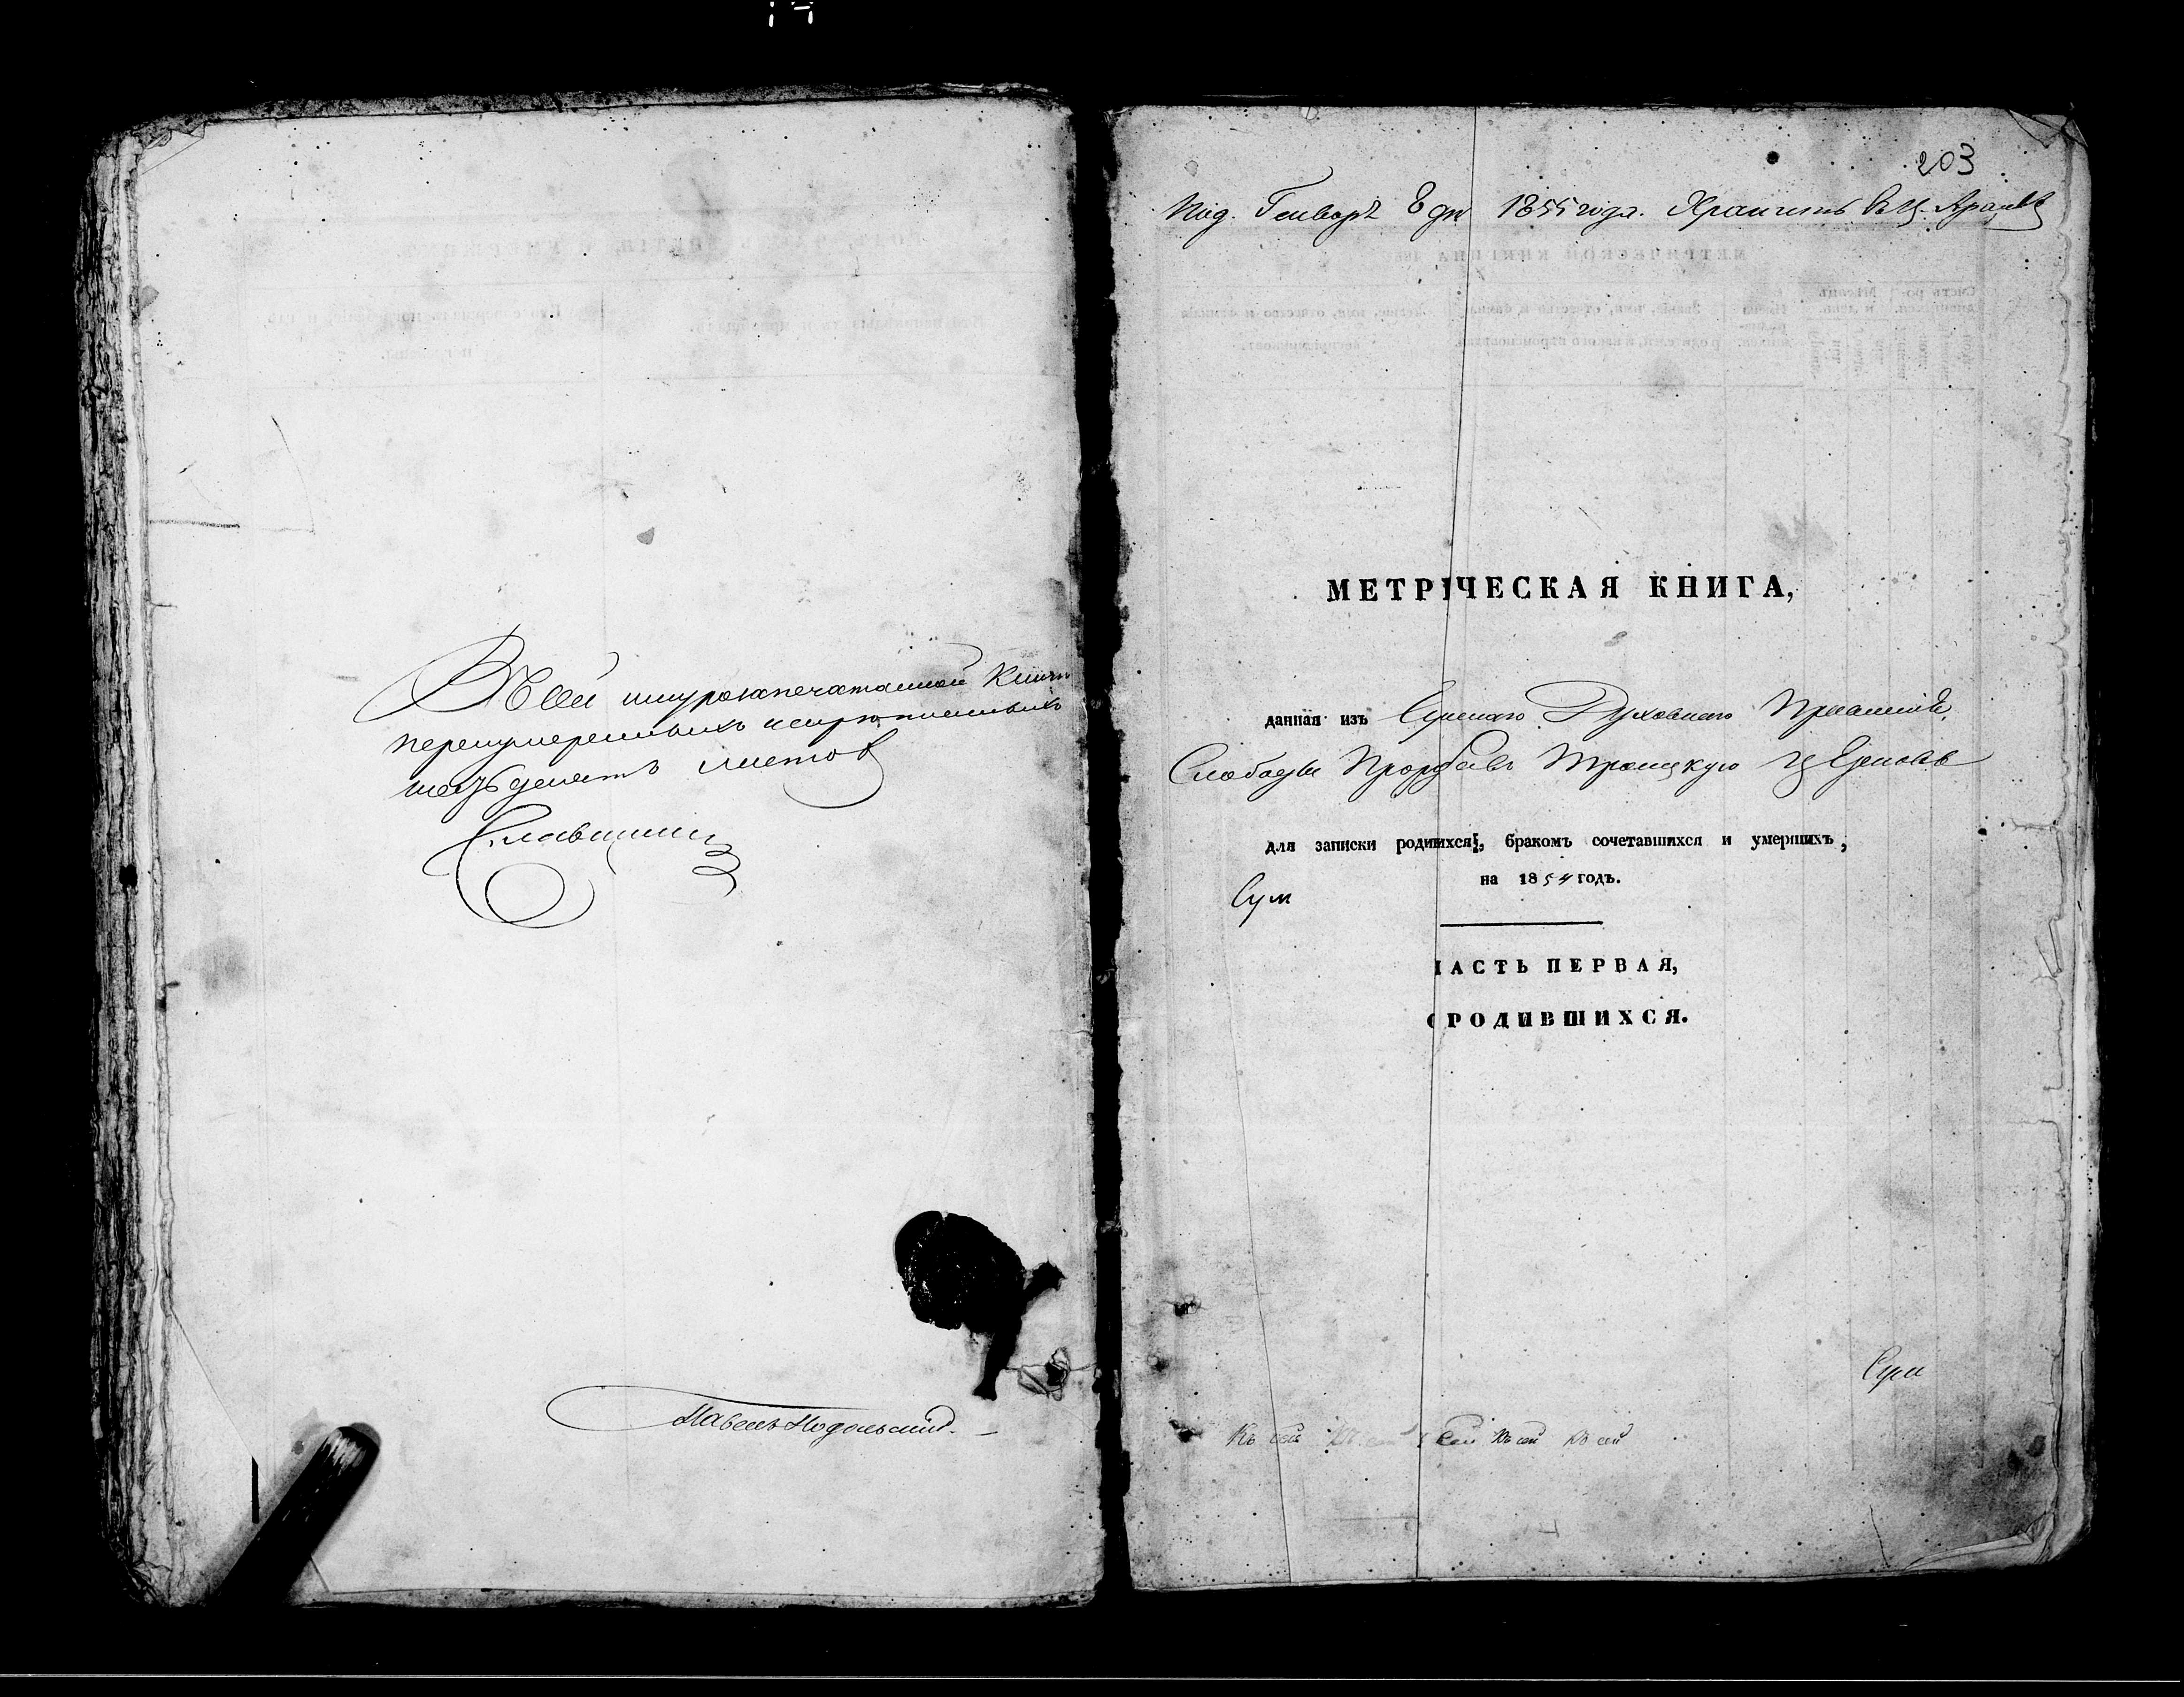 Въ сей шнурозапечатанной Книги
перенумерованныхъ и скрѣпленныхъ
шездесятъ листовъ
Павелъ Подольскій.
203
Под. Генваря 8 дн 1855 года. Хранить въ Ц. Архивѣ
МЕТРИЧЕСКАЯ КНИГА,
данная изъ Сумскаго Духовнаго Правленія,
Слободы Троицкую Церковь
для записки родившихся, бракомъ сочетавшихся и умершихъ,
на 1854 годъ.
Сум
ЧАСТЬ ПЕРВАЯ,
О РОДИВШИХСЯ.
Сум
Къ сей Къ сей сей Къ сей Къ сей